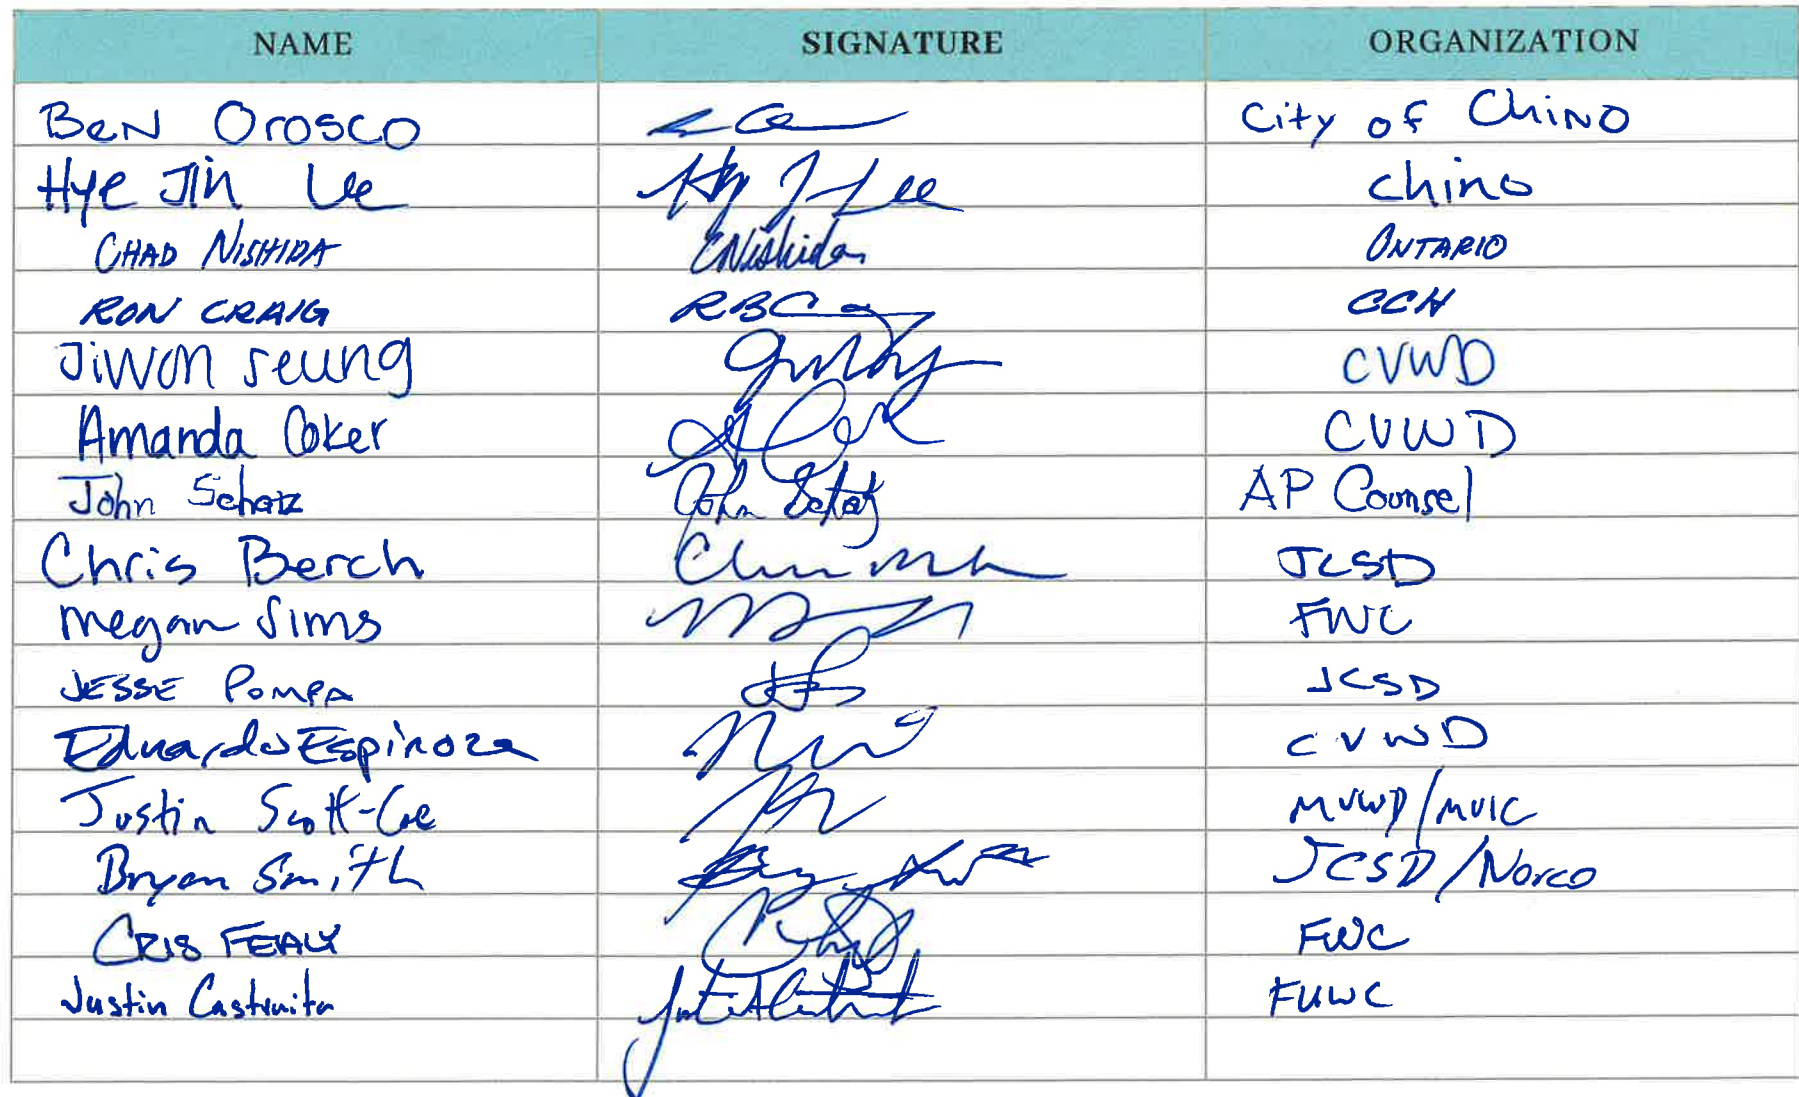 NAME SIGNATURE ORGANIZATION
Ben Orosco City of Chino
Hye Jin Lee Hy J Lee Chino
CHAD NISHIDA CNishida ONTARIO
RON CRAIG RBC CCH
Jiwon Seung CVWD
Amanda Coker CVWD
John Schatz John Schatz AP Counsel
Chris Berch JCSD
Megan Sims FWC
JESSE POMPA JCSD
Eduardo Espinoza CVWD
Justin Scott-Coe MVWD/MVIC
Bryan Smith JCSD/Norco
CRIS FEALY FWC
Justin Castruita FUWC